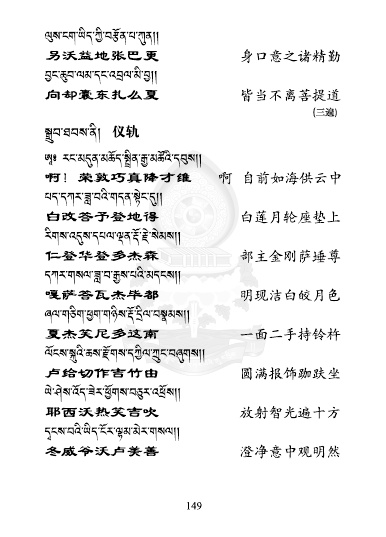 ལུས་ངག་ཡིད་ཀྱི་བརྩོན་པ་ཀུན།།
另沃益地张巴更 身口意之诸精勤
བྱང་ཆུབ་ལམ་དང་འབྲལ་མི་བྱ།།
向却囊东扎么夏 皆当不离菩提道
(三遍)
སྒྲུབ་ཐབས་ནི། 仪轨
ཨཱཿ རང་མདུན་མཆོད་སྤྲིན་རྒྱ་མཚོའི་དབུས།།
啊！荣敦巧真降才维 啊 自前如海供云中
པད་དཀར་ཟླ་བའི་གདན་སྟེང་དུ།།
白改答予登地得 白莲月轮座垫上
རིགས་འདུས་དཔལ་ལྡན་རྡོ་རྗེ་སེམས།།
仁登华登多杰森 部主金刚萨埵尊
དཀར་གསལ་ཟླ་བ་རྒྱས་པའི་མདངས།།
嘎萨答瓦杰毕都 明现洁白皎月色
ཞལ་གཅིག་ཕྱག་གཉིས་རྡོ་དྲིལ་བསྣམས།།
夏杰芙尼多这南 一面二手持铃杵
ལོངས་སྐུའི་ཆས་རྫོགས་དཀྱིལ་ཀྲུང་བཞུགས།།
卢给切作吉竹由 圆满报饰跏趺坐
ཡེ་ཤེས་འོད་ཟེར་ཕྱོགས་བཅུར་འཕྲོས།།
耶西沃热芙吉吹 放射智光遍十方
དྭངས་བའི་ཡིད་ངོར་ལྷམ་མེར་གསལ།།
冬威爷沃卢美善 澄净意中观明然
149